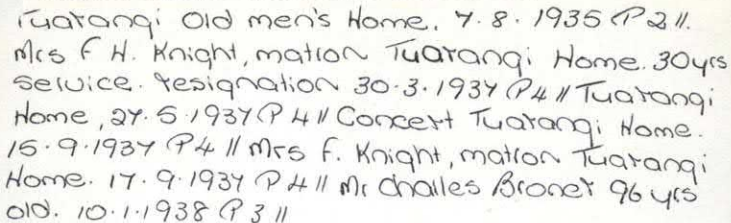 Tuarangi Old men's Home. 7.8.1935 P2 //.
Mrs F H. Knight, matron Tuarangi Home. 30yrs
service. resignation 30.3.1937 P4 // Tuarangi
Home, 27.5.1937 P4 // Concert Tuarangi Home.
15.9.1937 P4 // Mrs F. Knight, matron Tuarangi
Home. 17.9.1937 P4 // Mr Charles Broner 96 yrs
old. 10.1.1938 P3 //